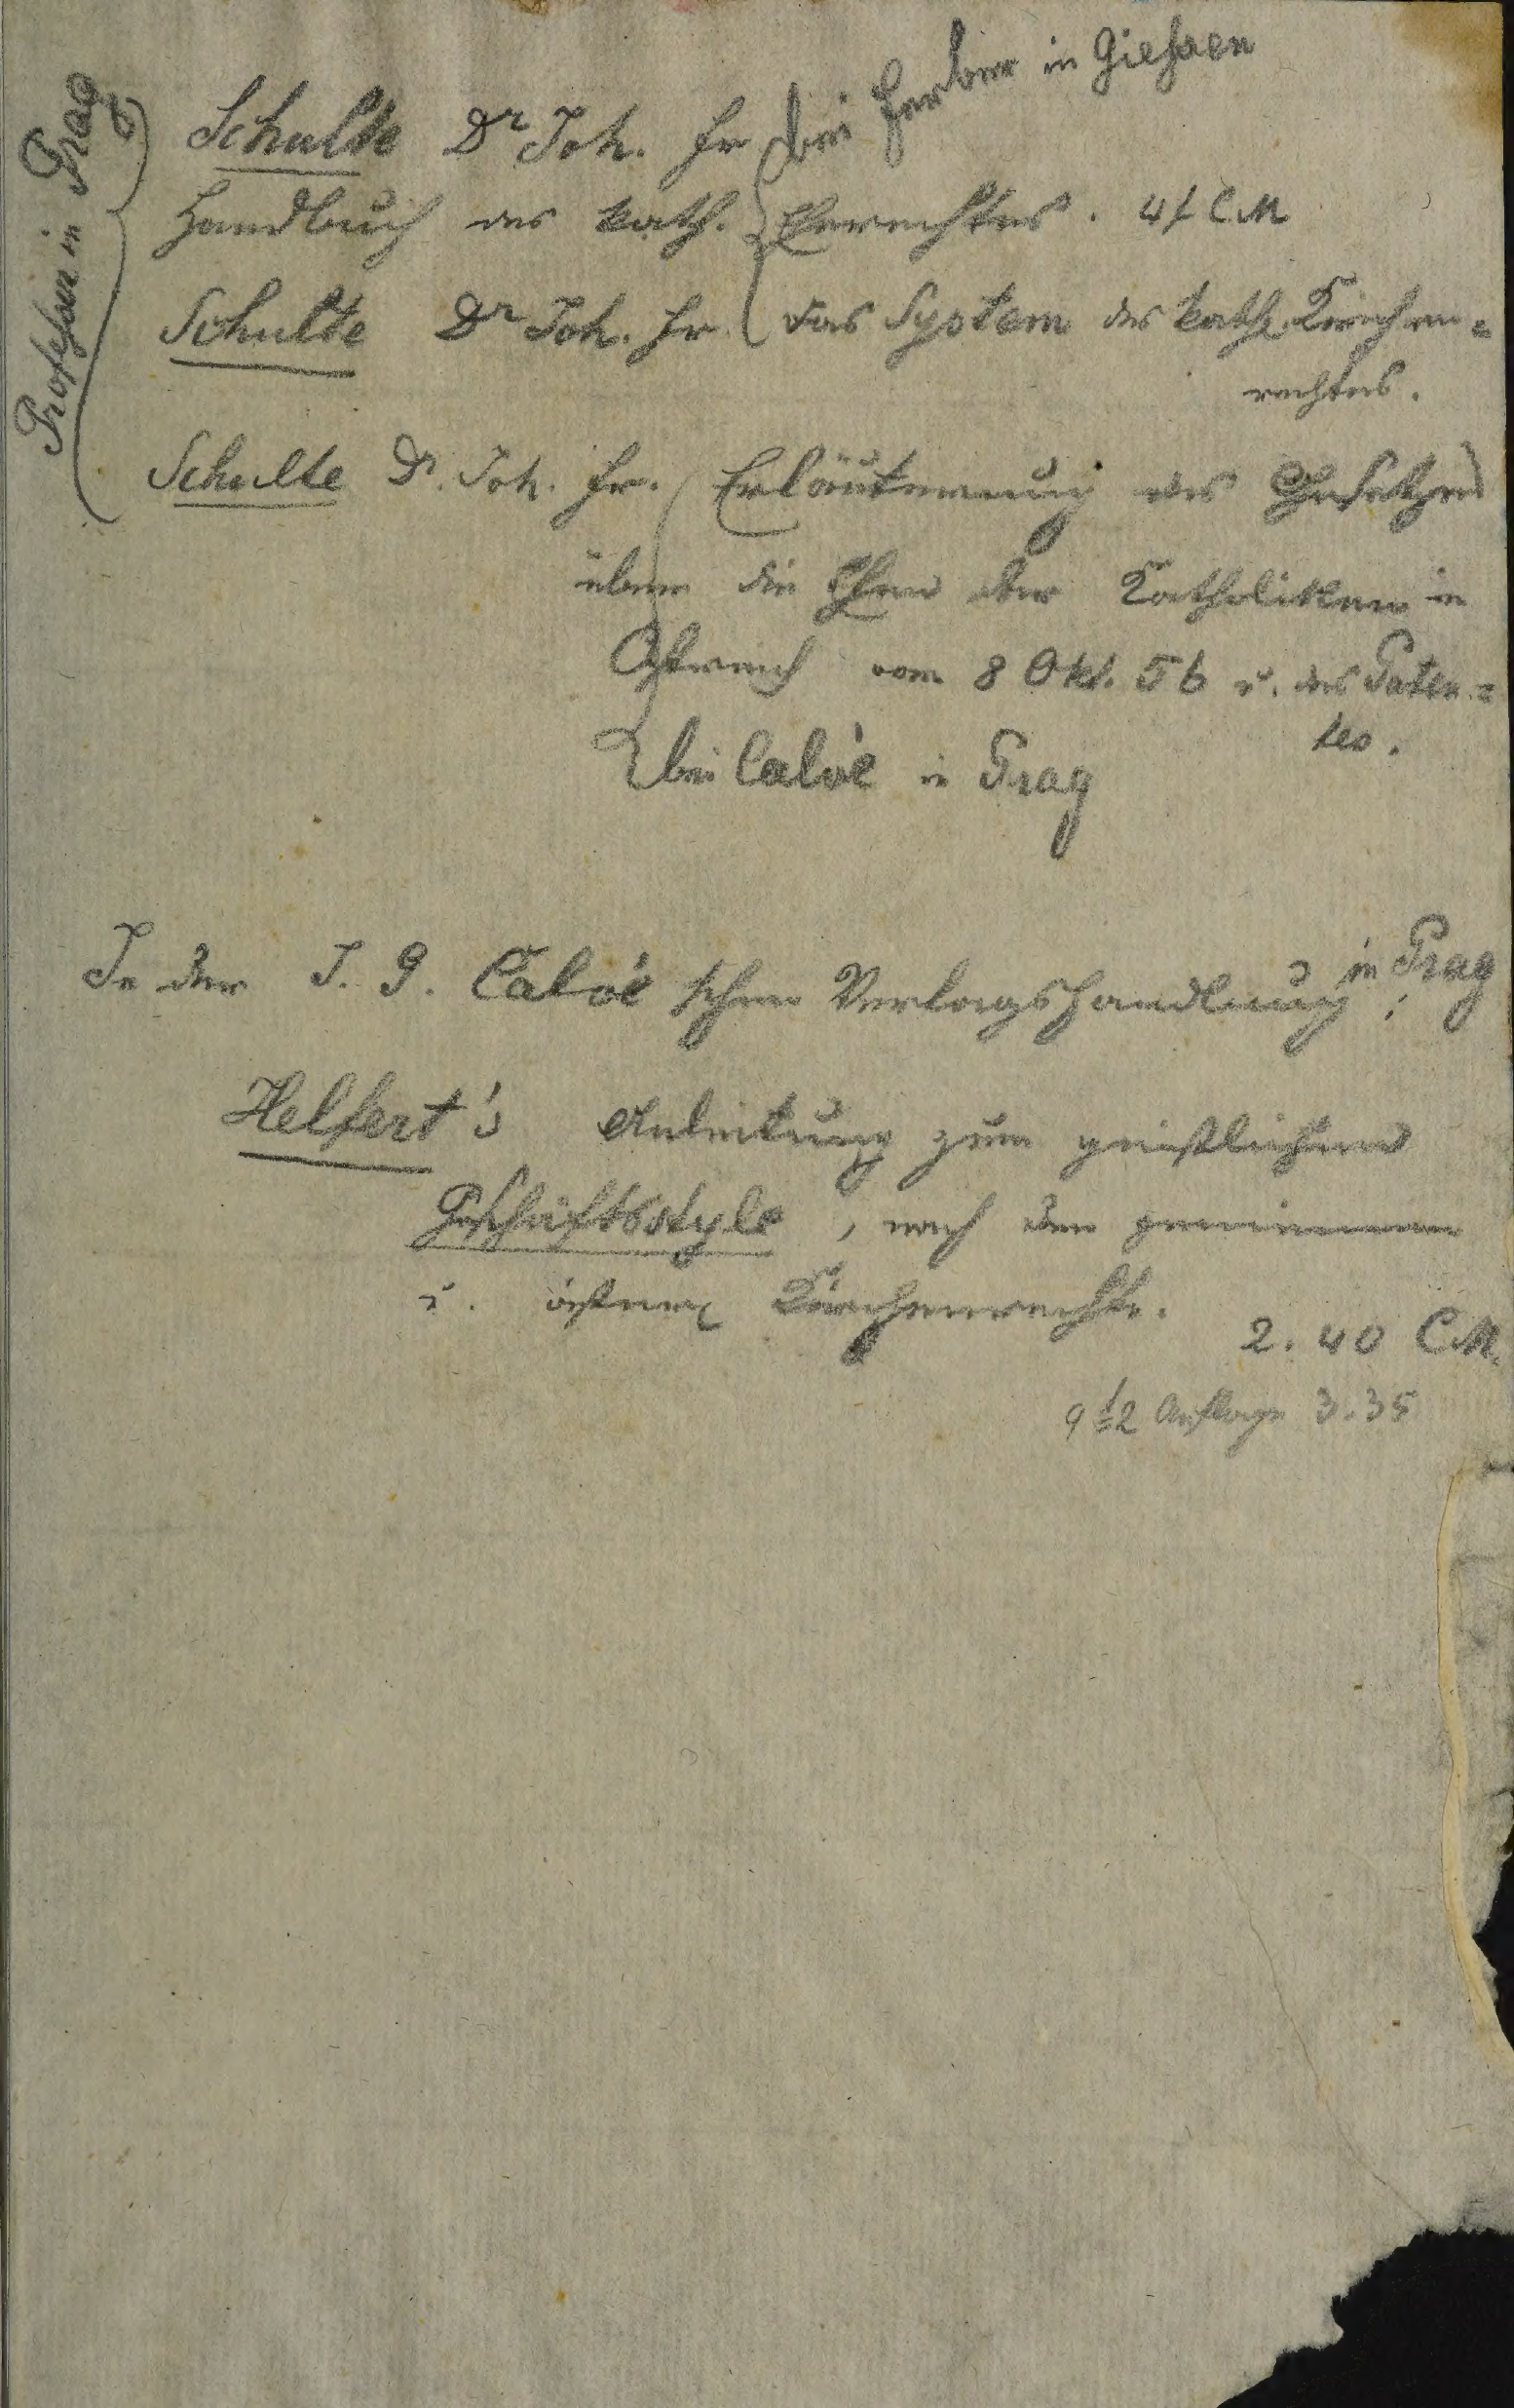 Professor in Prag
Schulte Dr Joh. Fr. bei Ferber in Gießen
Handbuch des kath. Eherechtes. 4 f CM
Schulte Dr Joh. Fr. das System des kath. Kirchen=
rechtes.
Schulte Dr. Joh. Fr. Erläuterung des Gesetzes
über die Ehen der Katholiken in
Östreich vom 8 Okt. 56 u. des Paten=
tes.
bei Calvé in Prag
In der J. G. Calvé'schen Verlagshandlung in Prag:
Helfert's Anleitung zum geistlichen
Geschäftsstyle, nach dem gemeinen
u. österr. Kirchenrechte.
2. 40 CM.
9te Auflage 3.35